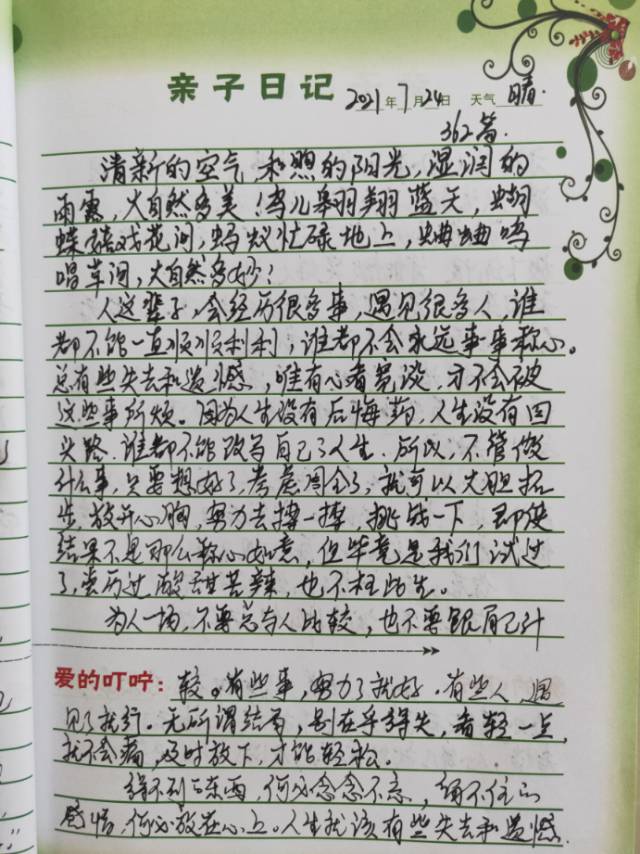 亲子日记 2021年7月24日 天气 晴
362篇.
清新的空气,和煦的阳光,湿润的
雨露,大自然多美!鸟儿翱翔蓝天,蝴
蝶嬉戏花间,蚂蚁忙碌地上,蛐蛐鸣
唱草间,大自然多妙!
人这辈子,会经历很多事,遇见很多人,谁
都不能一直顺顺利利,谁都不会永远事事称心。
总有些失去和遗憾,唯有心者宽谈,才不会被
这些事所烦。因为人生没有后悔药,人生没有回
头路,谁都不能改写自己的人生.所以,不管做
什么事,只要想好了,考虑周全了,就可以大胆拓
步,放开心胸,努力去搏一搏,挑战一下,即使
结果不是那么称心如意,但毕竟是我们试过
了,尝历过酸甜苦辣,也不枉此生。
为人一场,不要总与人比较,也不要跟自己计
爱的叮咛:较。有些事,努力了就好.有些人,遇
见了就行.无所谓结局,别在乎得失,看轻一点,
就不会痛,及时放下,才能轻松.
得不到的东西,何必念念不忘,留不住的
感情,何必放在心上。人生就该有些失去和遗憾.